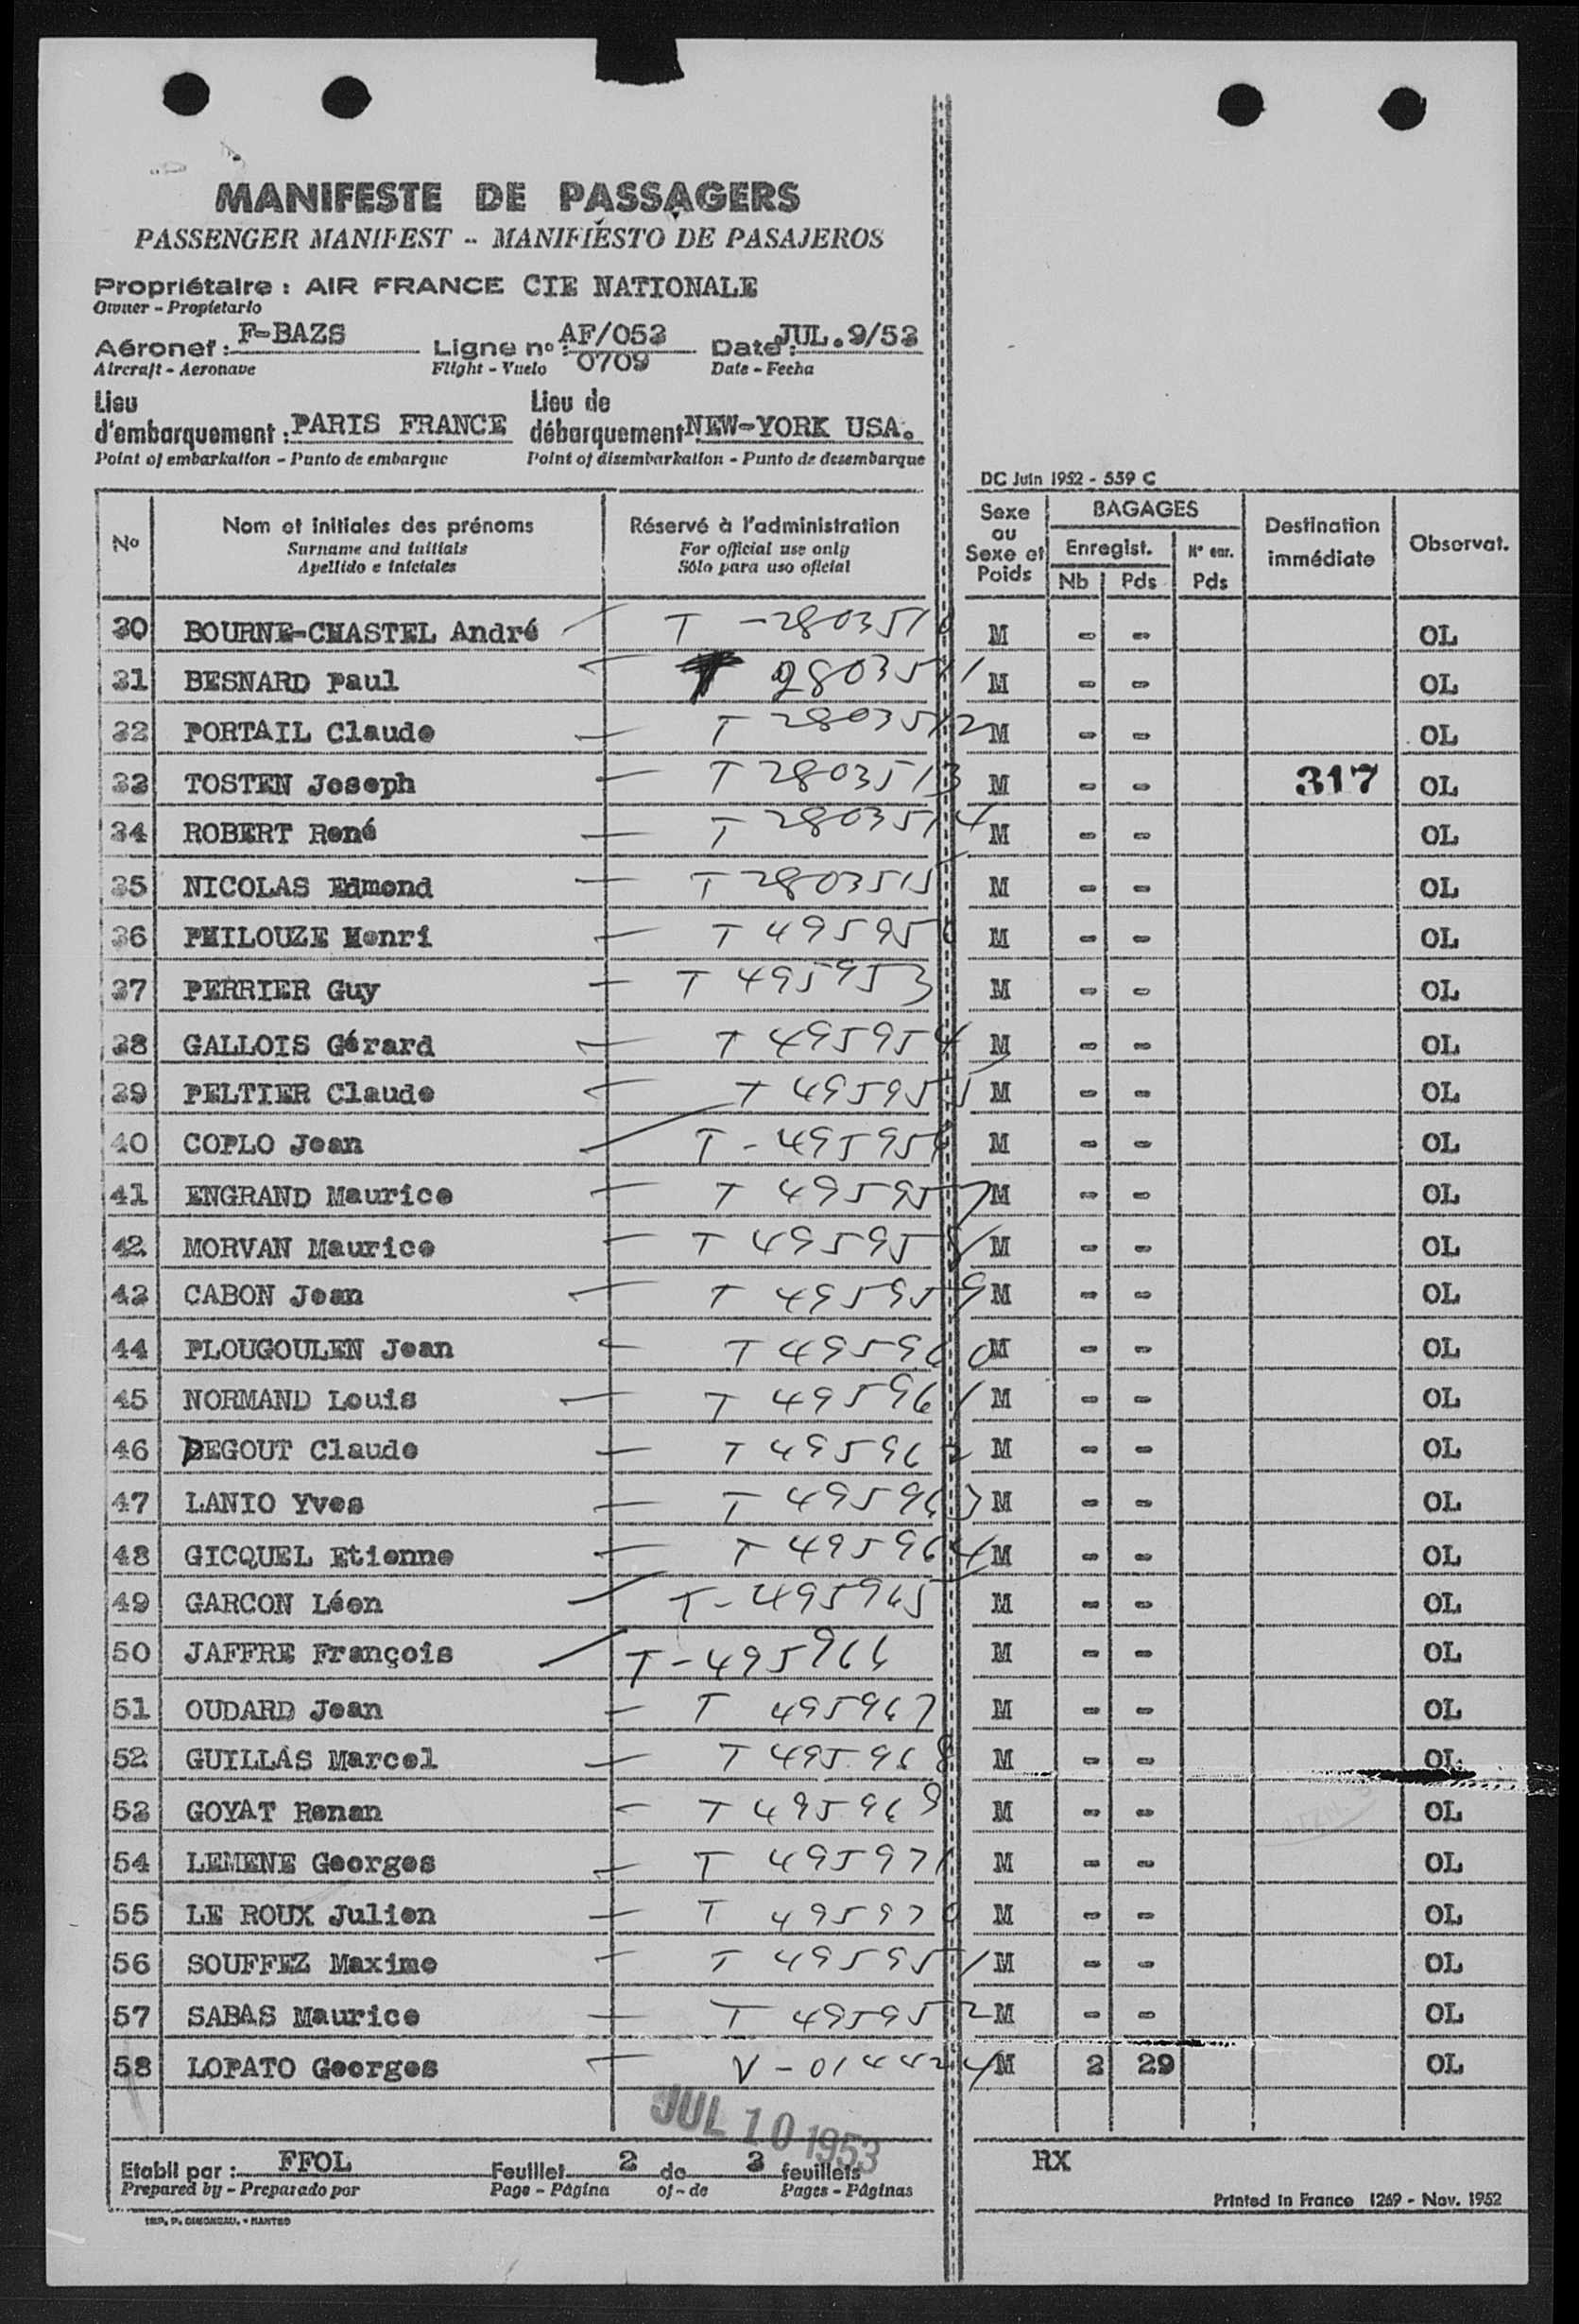 MANIFESTE DE PASSAGERS
PASSENGER MANIFEST - MANIFIESTO DE PASAJEROS
Propriétaire : AIR FRANCE CIE NATIONALE
Owner - Propietario
Aéronef : F-BAZS Ligne nº : AF/053 0709 Date : JUL.9/53
Aircraft - Aeronave Flight - Vuelo Date - Fecha
Lieu d'embarquement : PARIS FRANCE Lieu de débarquement NEW-YORK USA.
Point of embarkation - Punto de embarque Point of disembarkation - Punto de desembarque
DC Juin 1952 - 559 C
Nº Nom et initiales des prénoms Réservé à l'administration Sexe ou Sexe et Poids BAGAGES Destination immédiate Observat.
Surname and initials For official use only Enregist. Nº enr.
Apellido e iniciales Sólo para uso oficial Nb Pds Pds
30 BOURNE-CHASTEL André T - 2803510 M - - OL
31 BESNARD Paul T 2803511 M - - OL
32 PORTAIL Claude T 2803512 M - - OL
33 TOSTEN Joseph T 2803513 M - - 317 OL
34 ROBERT René T 2803514 M - - OL
35 NICOLAS Edmond T 2803515 M - - OL
36 PHILOUZE Henri T 495950 M - - OL
37 PERRIER Guy T 495953 M - - OL
38 GALLOIS Gérard T 495954 M - - OL
39 PELTIER Claude T 495955 M - - OL
40 COPLO Jean T - 495956 M - - OL
41 ENGRAND Maurice T 495957 M - - OL
42 MORVAN Maurice T 495958 M - - OL
43 CABON Jean T 495959 M - - OL
44 PLOUGOULEN Jean T 495960 M - - OL
45 NORMAND Louis T 495961 M - - OL
46 DEGOUT Claude T 495962 M - - OL
47 LANIO Yves T 495963 M - - OL
48 GICQUEL Etienne T 495964 M - - OL
49 GARCON Léon T - 495965 M - - OL
50 JAFFRE François T - 495966 M - - OL
51 OUDARD Jean T 495967 M - - OL
52 GUILLAS Marcel T 495968 M - - OL
53 GOYAT Renan T 495969 M - - OL
54 LEMENE Georges T 495971 M - - OL
55 LE ROUX Julien T 495970 M - - OL
56 SOUFFEZ Maxime T 495951 M - - OL
57 SABAS Maurice T 495952 M - - OL
58 LOPATO Georges V - 014424 M 2 29 OL
JUL 10 1953
Etabli par : FFOL Feuillet 2 de 3 feuillets RX
Prepared by - Preparado por Page - Página of - de Pages - Páginas
Printed in France 1269 - Nov. 1952